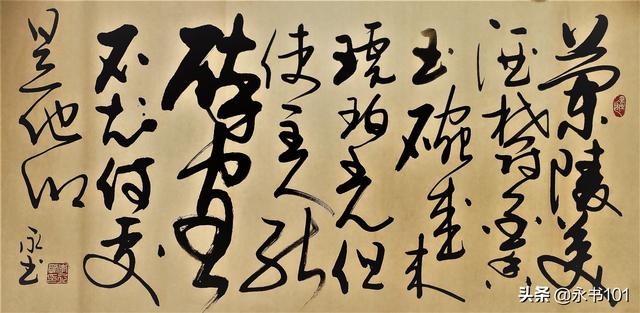 蘭陵美
酒郁金香
玉碗盛来
琥珀光但
使主人能
醉客
不知何处
是他乡
永书
头条 @永书101